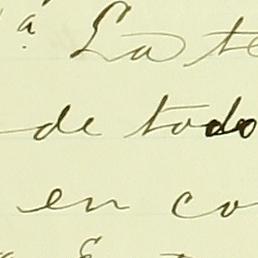 ª La te
de todo
en co